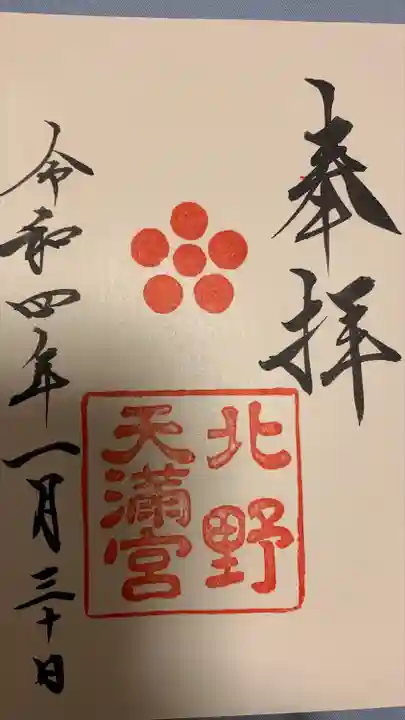 奉拝
北野
天満宮
令和四年一月三十日